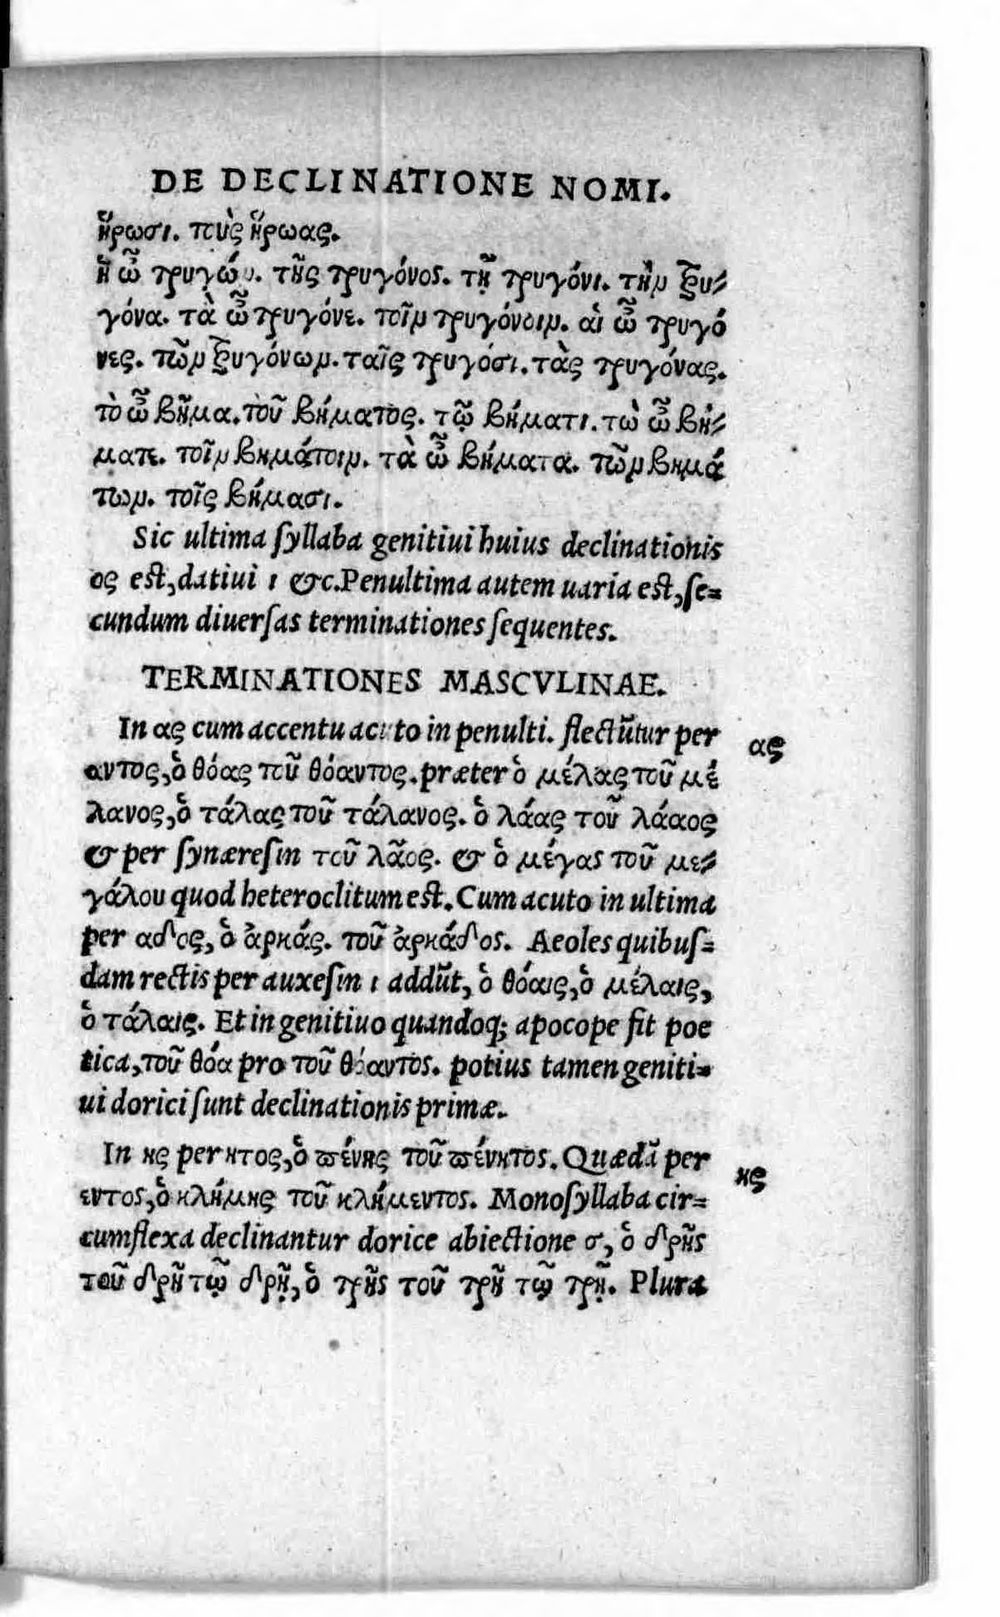 DE DECLINATIONE NOMI.
ἥρωσι. τοὺς ἥρωας.
ἡ ὦ τρυγών. τῆς τρυγόνος. τῇ τρυγόνι. τὴν τρυ-
γόνα. τὰ ὦ τρυγόνε. τοῖν τρυγόνοιν. αἱ ὦ τρυγό
νες. τῶν τρυγόνων. ταῖς τρυγόσι. τὰς τρυγόνας.
τὸ ὦ βῆμα. τοῦ βήματος. τῷ βήματι. τὼ ὦ βή-
ματε. τοῖν βημάτοιν. τὰ ὦ βήματα. τῶν βημά
των. τοῖς βήμασι.
Sic ultima syllaba genitiui huius declinationis
ος est, datiui ι &c. Penultima autem uaria est, se-
cundum diuersas terminationes sequentes.
TERMINATIONES MASCVLINAE.
In ας cum accentu acuto in penulti. flectũtur per
ας
αντος, ὁ θόας τοῦ θόαντος. præter ὁ μέλας τοῦ μέ
λανος, ὁ τάλας τοῦ τάλανος. ὁ λάας τοῦ λάαος
& per synæresin τοῦ λᾶος. & ὁ μέγας τοῦ με-
γάλου quod heteroclitum est. Cum acuto in ultima
per αδος, ὁ ἀρκάς. τοῦ ἀρκάδος. Aeoles quibus-
dam rectis per auxesin ι addũt, ὁ θόαις, ὁ μέλαις,
ὁ τάλαις. Et in genitiuo quandoq; apocope fit poe
tica, τοῦ θόα pro τοῦ θόαντος. potius tamen geniti-
ui dorici sunt declinationis primæ.
In ης per ητος, ὁ πένης τοῦ πένητος. Quædã per
ης
εντος, ὁ κλήμης τοῦ κλήμεντος. Monosyllaba cir-
cumflexa declinantur dorice abiectione σ, ὁ δρῆς
τοῦ δρῆ τῷ δρῇ, ὁ τρῆς τοῦ τρῆ τῷ τρῇ. Plura